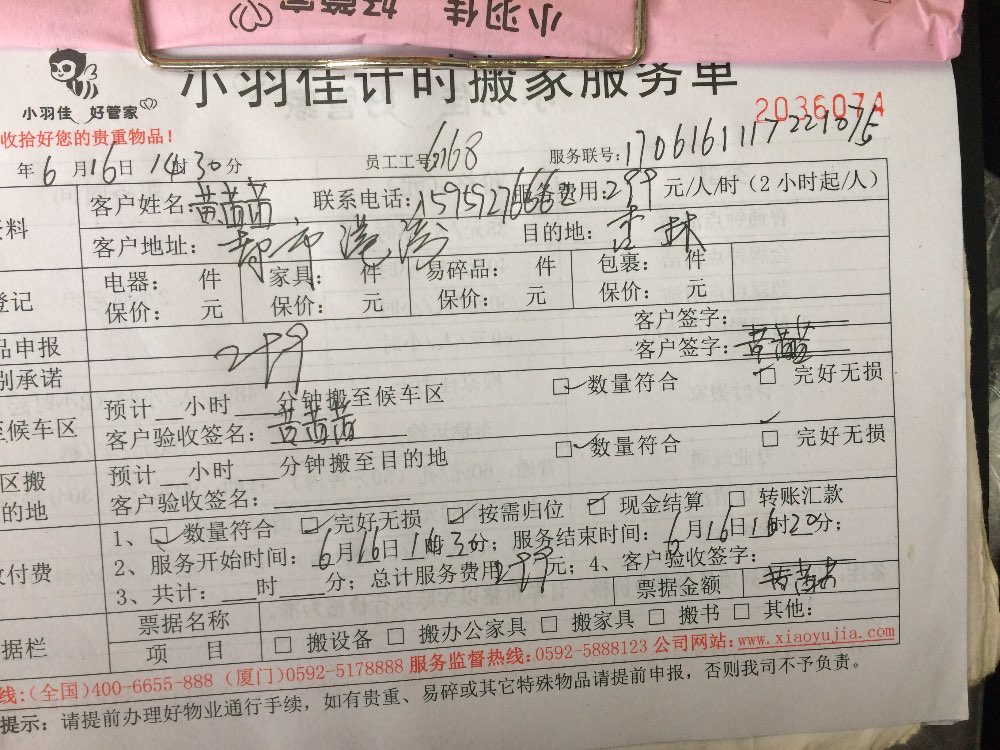 小羽佳 好管家
小羽佳计时搬家服务单
小羽佳 好管家
2036074
收拾好您的贵重物品！
年6月16日14时30分 员工工号:6168 服务联号:
资料 客户姓名: 联系电话: 服务费用:299元/人/时（2小时起/人）
客户地址: 都市港湾 目的地:
登记 电器: 件 家具: 件 易碎品: 件 包裹: 件
保价: 元 保价: 元 保价: 元 保价: 元
品申报 客户签字:
别承诺 299 客户签字:
至候车区 预计__小时____分钟搬至候车区 数量符合 完好无损
客户验收签名:
区搬 预计__小时____分钟搬至目的地 数量符合 完好无损
的地 客户验收签名:
1、数量符合 完好无损 按需归位 现金结算 转账汇款
收付费 2、服务开始时间: 6月16日14时30分; 服务结束时间: 6月16日16时20分;
3、共计:___时___分; 总计服务费用299元; 4、客户验收签字:
据栏 票据名称 票据金额
项 目 □ 搬设备 □ 搬办公家具 □ 搬家具 □ 搬书 □ 其他:
线:(全国)400-6655-888 (厦门)0592-5178888 服务监督热线:0592-5888123 公司网站:www.xiaoyujia.com
提示: 请提前办理好物业通行手续，如有贵重、易碎或其它特殊物品请提前申报，否则我司不予负责。